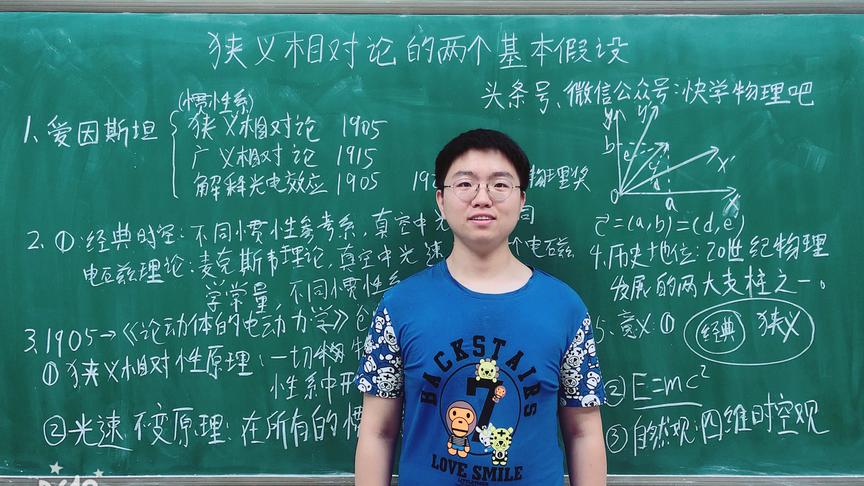 狭义相对论的两个基本假设
头条号、微信公众号:快学物理吧
(惯性系)
1、爱因斯坦
狭义相对论 1905
广义相对论 1915
解释光电效应 1905 物理奖
2、①:经典时空:不同惯性参考系,真空中光 同
电磁理论:麦克斯韦理论,真空中光速 个电磁
学常量,不同惯性系
3、1905→《论动体的电动力学》
①狭义相对性原理:一切物
性系中
②光速不变原理:在所有的惯
y y'
b e c d
x'
0 a x
c=(a,b)=(d,e)
4、历史地位:20世纪物理
发展的两大支柱之一。
意义:① 经典 狭义
②E=mc²
③自然观:四维时空观
BACKSTAIRS
7
LOVE SMILE